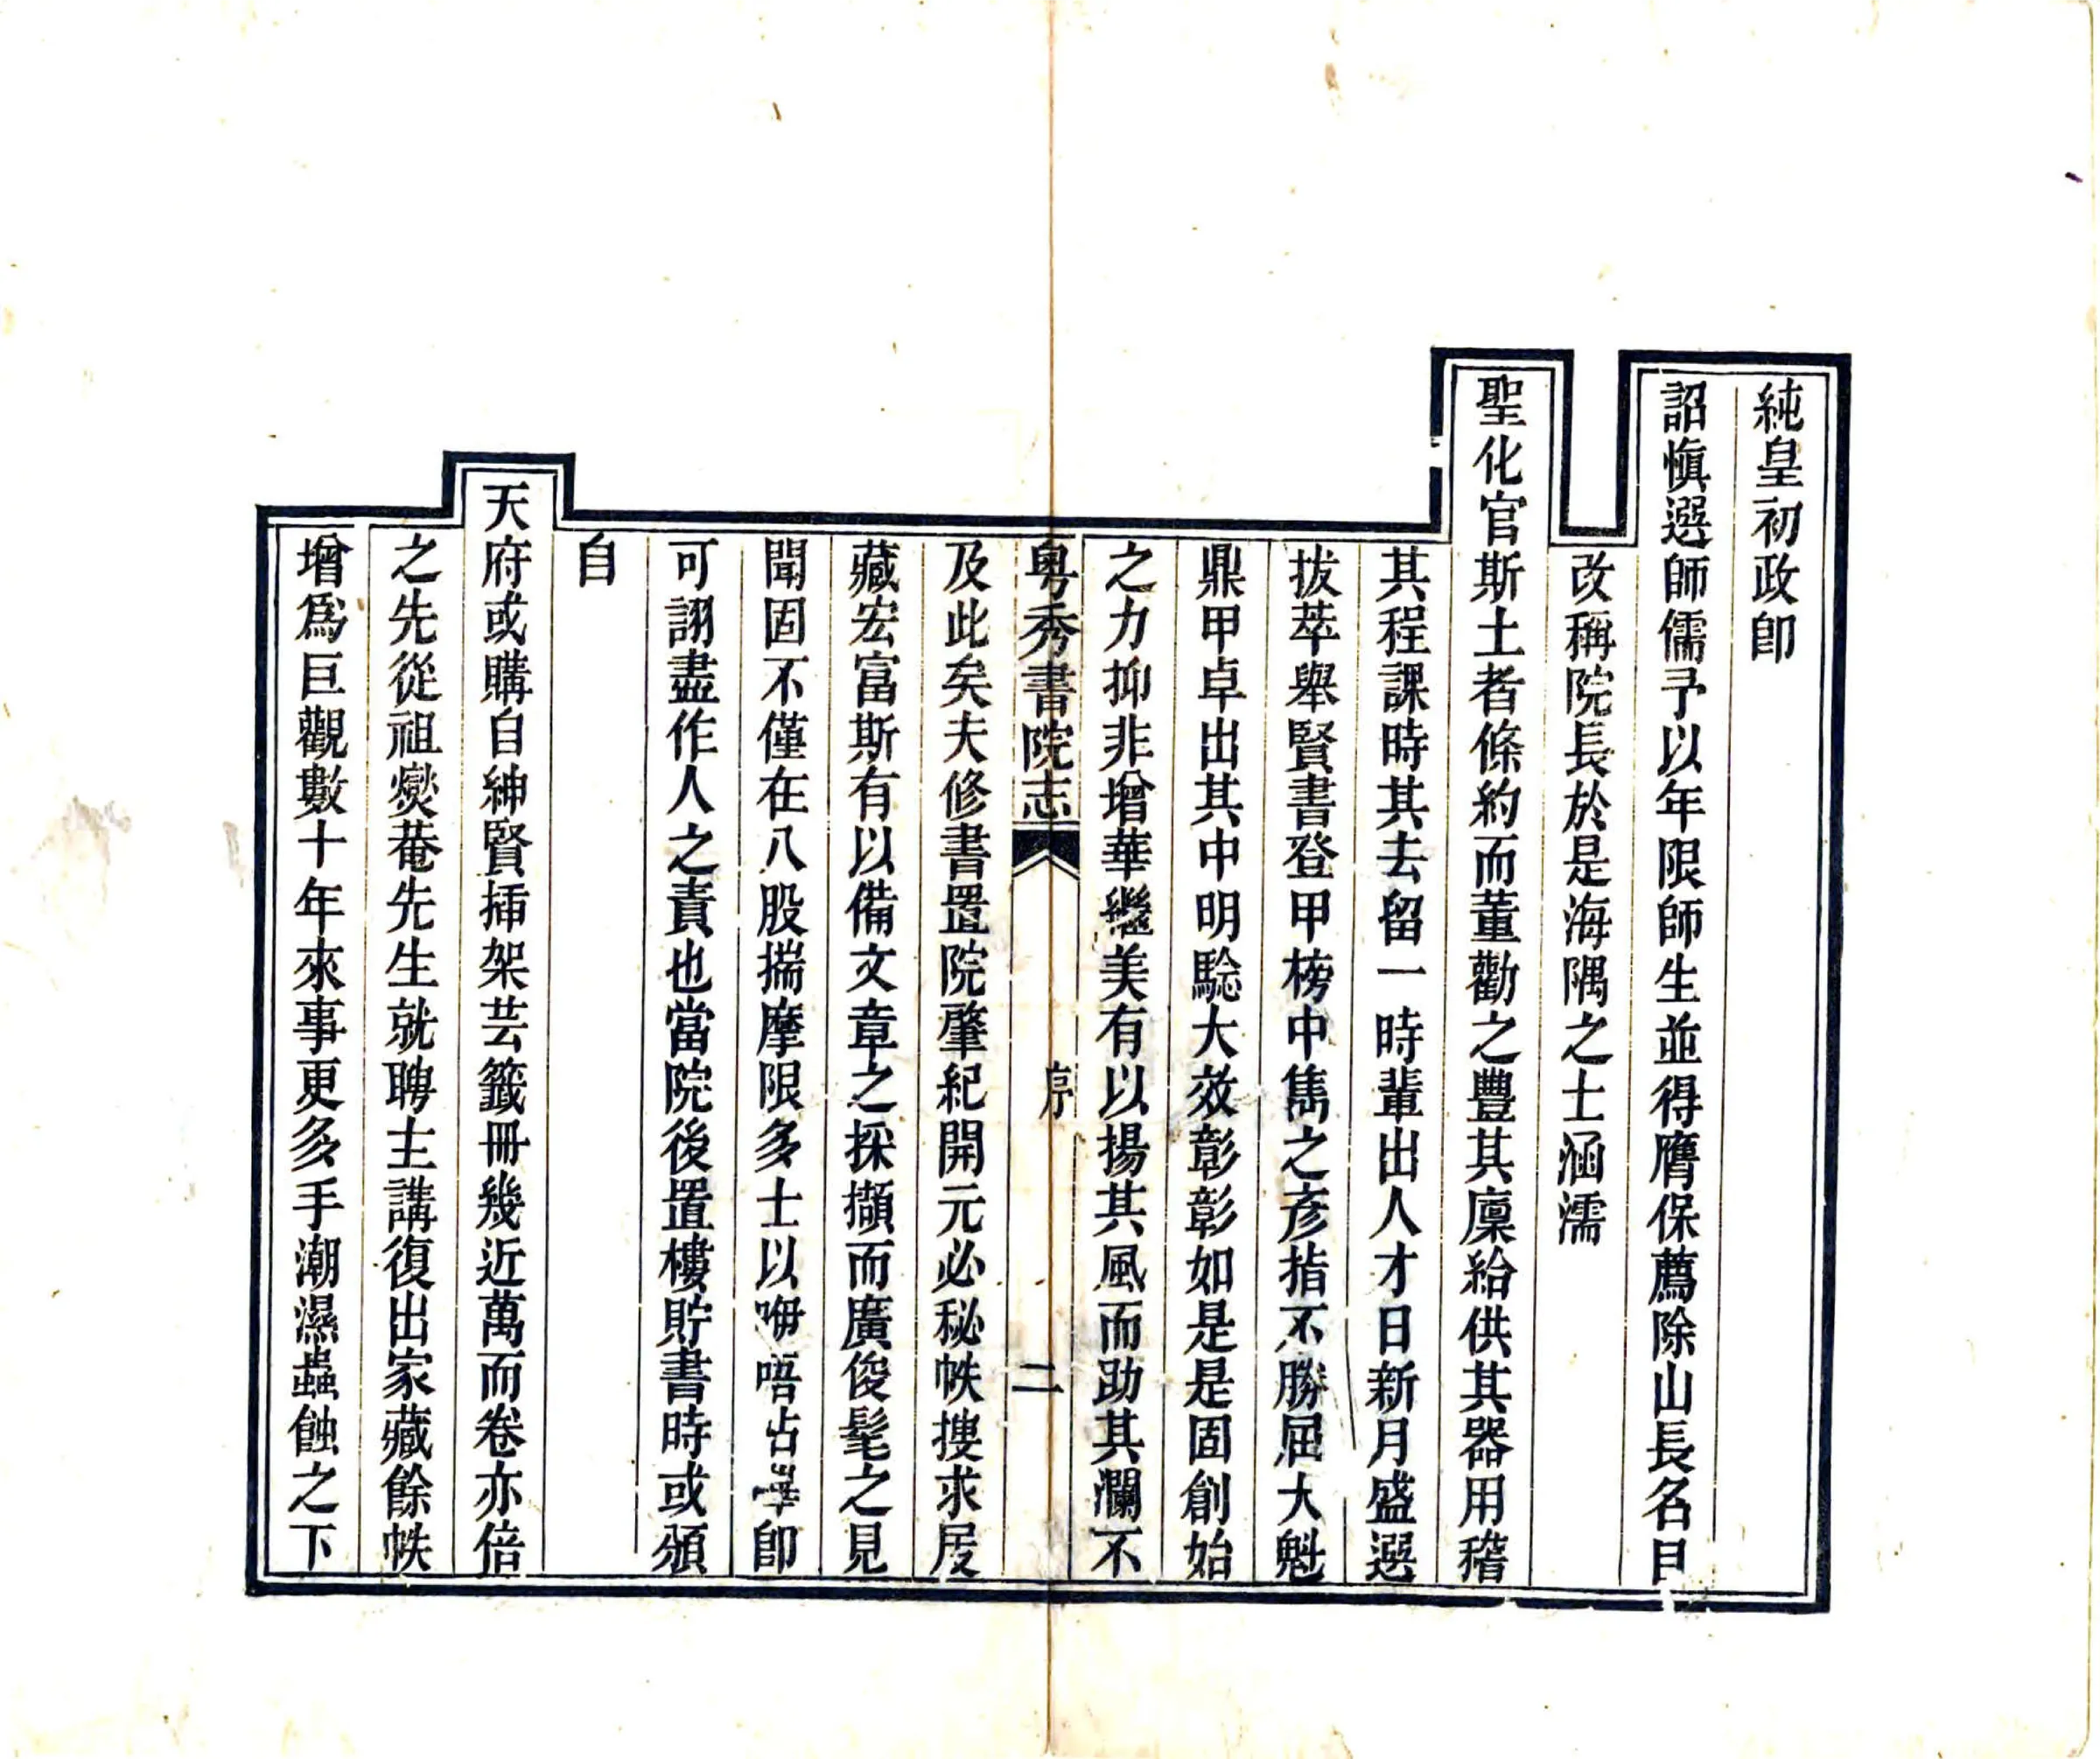 純皇初政卽
詔愼選師儒予以年限師生並得膺保薦除山長名目
改稱院長於是海隅之士涵濡
聖化官斯土者條約而董勸之豐其廩給供其器用稽
其程課時其去留一時輩出人才日新月盛選
拔萃舉賢書登甲榜中雋之彥指不勝屈大魁
鼎甲卓出其中明騐大效彰彰如是是固創始
之力抑非增華繼美有以揚其風而助其瀾不
粤秀書院志 序 二
及此矣夫修書置院肇紀開元必秘帙搜求庋
藏宏富斯有以備文章之採擷而廣俊髦之見
聞固不僅在八股揣摩限多士以咿唔佔畢卽
可詡盡作人之責也當院後置樓貯書時或頒
自
天府或購自紳賢插架芸籤冊幾近萬而卷亦倍
之先從祖爕菴先生就聘主講復出家藏餘帙
增爲巨觀數十年來事更多手潮濕蟲蝕之下